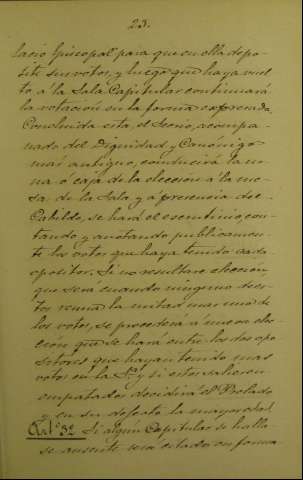 23.
lacio Episcopal para que en ella depo-
site sus votos, y luego que haya vuel-
to á la Sala Capitular continuará
la votación en la forma expresada.
Concluida esta, el Srio, acompa-
ñado del Dignidad y Canónigo
mas antiguo, conducirá la ur-
na ó caja de la elección á la me-
sa de la Sala y á presencia del
Cabildo, se hará el escrutinio con-
tando y anotando publicamen-
te los votos que haya tenido cada
opositor. Si no resultare elección
que será cuando ninguno de es-
tos reuna la mitad mas uno de
los votos, se procederá á nueva elec-
ción que se hará entre los dos opo-
sitores que hayan tenido mas
votos en la 1ª y si estos salieren
empatados decidirá el Prelado
y en su defecto la mayor edad.
Art.º 32 Si algun Capitular se halla-
se ausente será citado en forma